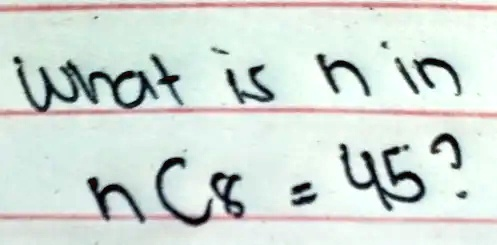 What is n in
nC8 = 45?